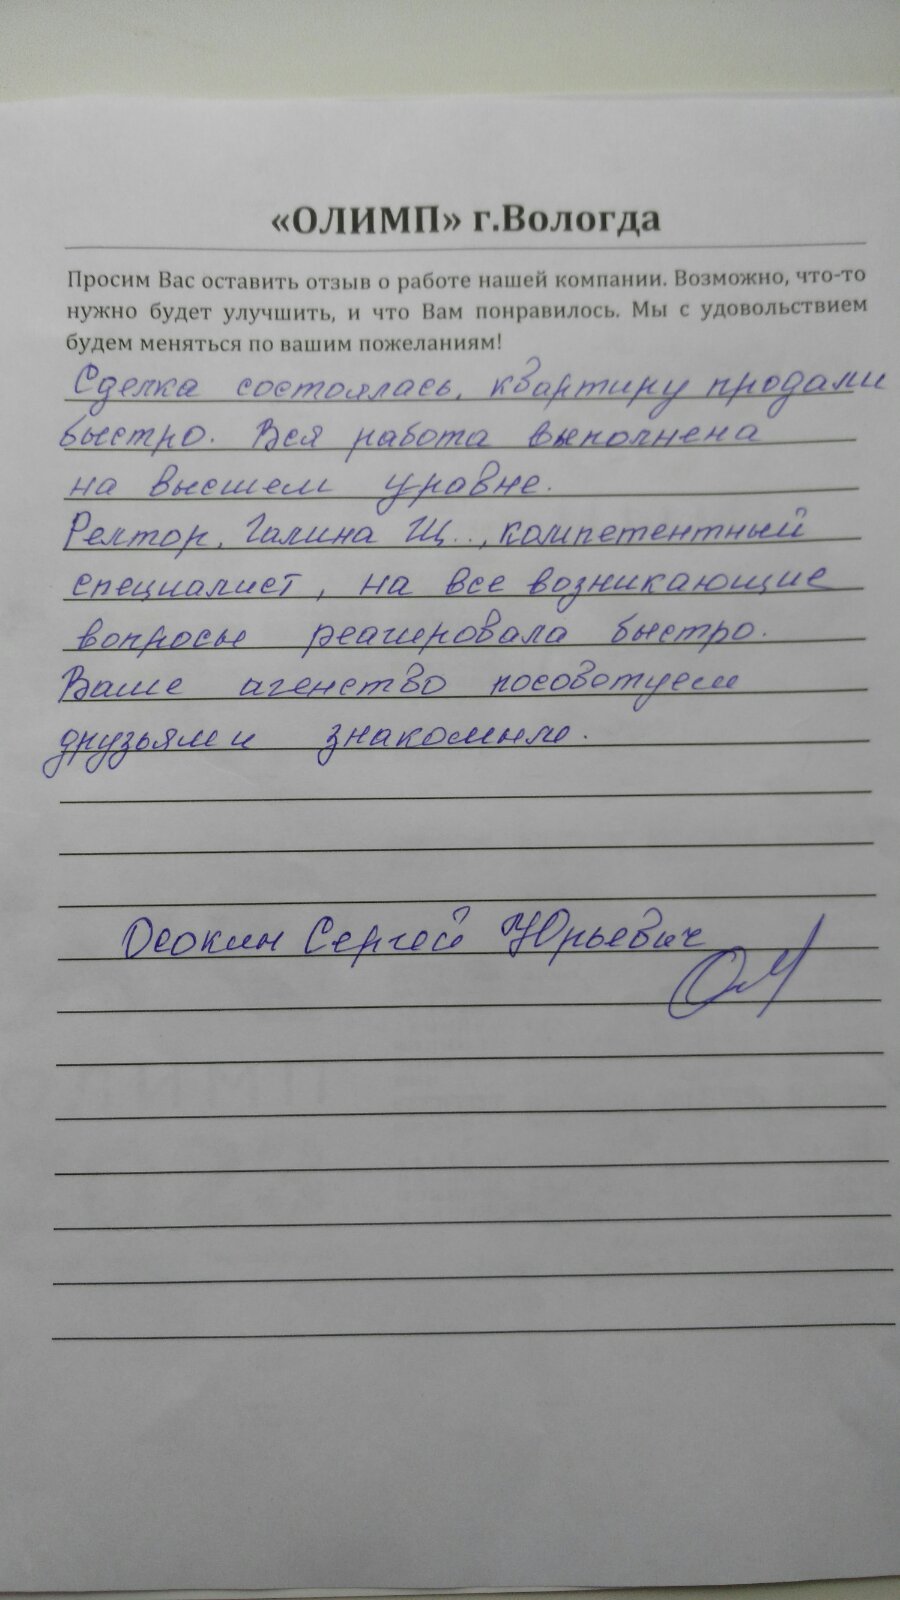 «ОЛИМП» г.Вологда
Просим Вас оставить отзыв о работе нашей компании. Возможно, что-то
нужно будет улучшить, и что Вам понравилось. Мы с удовольствием
будем меняться по вашим пожеланиям!
Сделка состоялась, квартиру продали
быстро. Вся работа выполнена
на высшем уровне.
Релтор, Галина Щ.., компетентный
специалист, на все возникающие
вопросы реагировала быстро.
Ваше агенство пособотуем
друзьям и знакомым.
Осокин Сергей Юрьевич